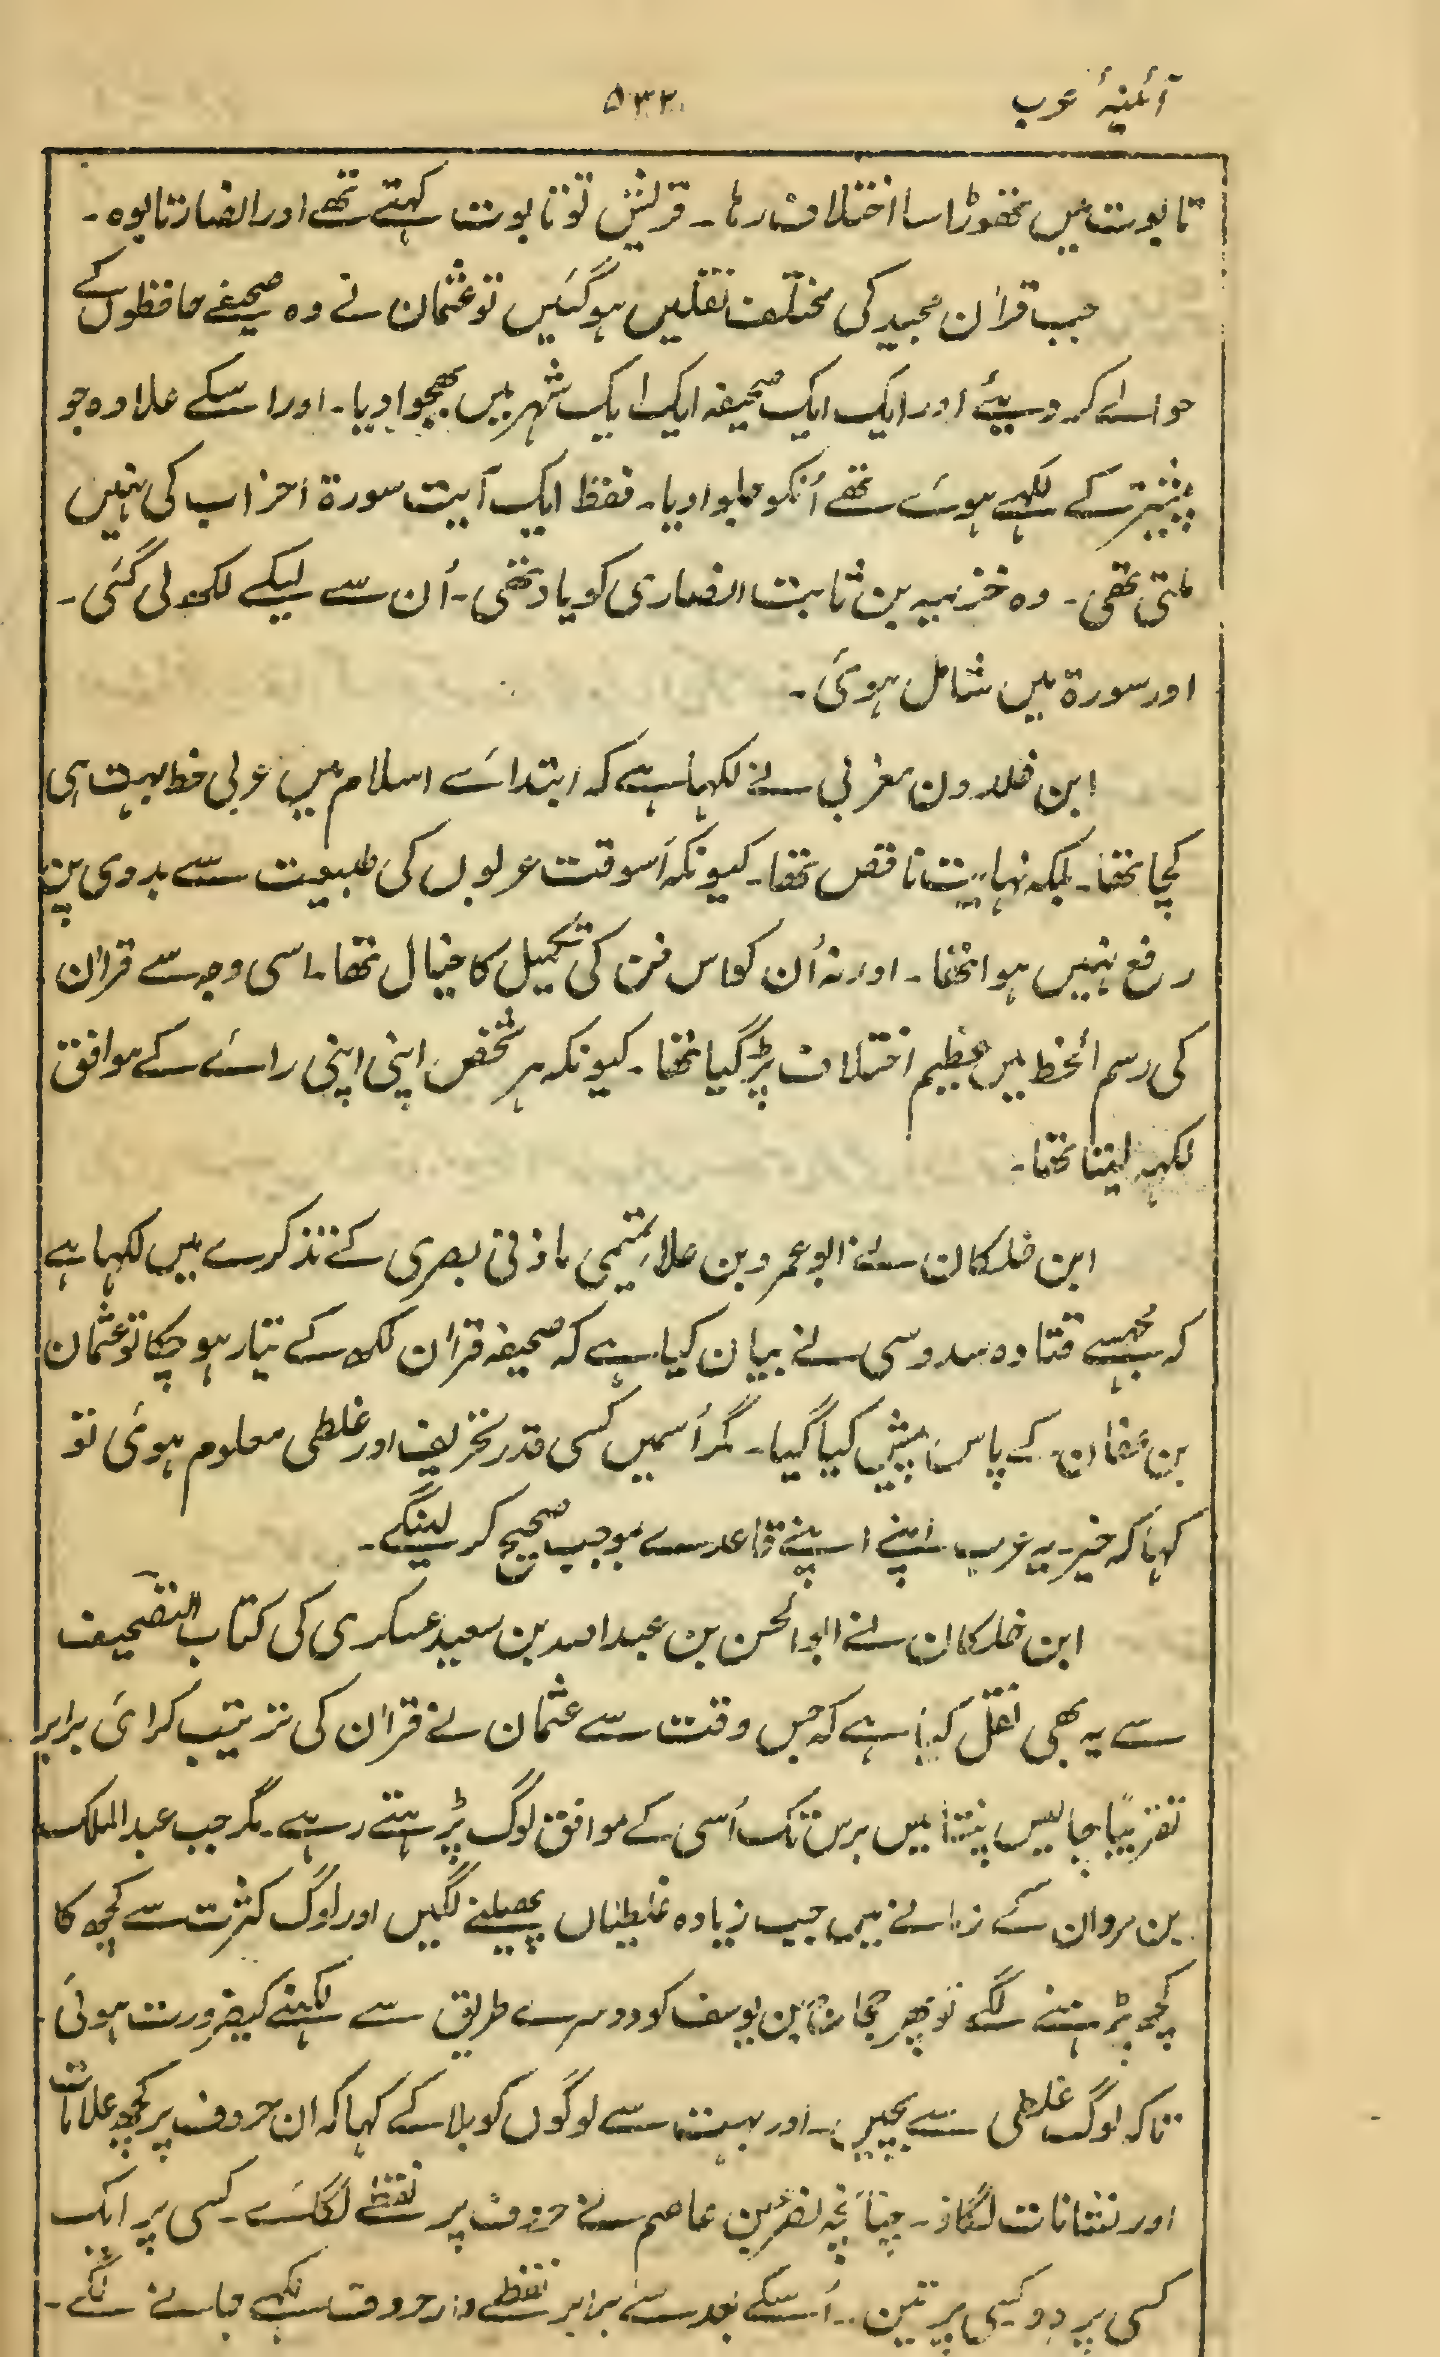 آئینۂ عرب
۵۳۲
تابوت میں تھوڑا سا اختلاف رہا۔ قریش تو تابوت کہتے تھے اور انصار تابوہ۔
جب قرآن مجید کی مختلف نقلیں ہوگئیں تو عثمان نے وہ صحیفے حافظوں کے
حوالے کر دیئے اور ایک ایک صحیفہ ایک ایک شہر میں بھجوا دیا۔ اور اسکے علاوہ جو
پیشتر کے لکھے ہوئے تھے اُنکو جلوا دیا۔ فقط ایک آیت سورۃ احزاب کی نہیں
ملتی تھی۔ وہ خزیمہ بن ثابت انصاری کو یاد تھی۔ اُن سے لیکے لکھ لی گئی۔
اور سورۃ میں شامل ہوئی۔
ابن خلدون مغربی نے لکہا ہے کہ ابتدائے اسلام میں عربی خط بہت ہی
کچا تھا۔ بلکہ نہایت ناقص تھا۔ کیونکہ اُسوقت عربوں کی طبیعت سے بدوی پن
رفع نہیں ہوا تھا۔ اور نہ اُن کو اس فن کی تکمیل کا خیال تھا۔ اسی وجہ سے قرآن
کی رسم الخط میں عظیم اختلاف پڑ گیا تھا۔ کیونکہ ہر شخص اپنی اپنی رائے کے موافق
لکہہ لیتا تھا۔
ابن خلکان نے ابو عمرو بن علاء تمیمی مازنی بصری کے تذکرے میں لکہا ہے
کہ مجہسے قتادہ سدوسی نے بیان کیا ہے کہ صحیفہ قرآن لکھ کے تیار ہو چکا تو عثمان
بن عفان کے پاس پیش کیا گیا۔ مگر اُسمیں کسی قدر تحریف اور غلطی معلوم ہوئی تو
کہا کہ خیر۔ یہ عرب اپنے اپنے قاعدے بموجب صحیح کر لینگے۔
ابن خلکان نے ابو الحسن بن عبد اللہ بن سعید عسکری کی کتاب التصحیف
سے یہ بھی نقل کیا ہے کہ جس وقت سے عثمان نے قرآن کی ترتیب کرائی برابر
تقریبًا چالیس پنتالیس برس تک اُسی کے موافق لوگ پڑہتے رہے۔ مگر جب عبد الملک
بن مروان کے زمانے میں جب زیادہ غلطیاں پھیلنے لگیں اور لوگ کثرت سے کچھ کا
کچھ پڑہنے لگے تو پھر حجاج بن یوسف کو دوسرے طریق سے لکہنے کیضرورت ہوئی۔
تاکہ لوگ غلطی سے بچیں۔ اور بہت سے لوگوں کو بلا کے کہا کہ ان حروف پر کچھ علامات
اور نشانات لگاؤ۔ چنانچہ نصر بن عاصم نے حروف پر نقطے لگائے۔ کسی پر ایک
کسی پر دو کسی پر تین۔ اُسکے بعد سے برابر نقطے دار حروف لکہے جانے لگے۔